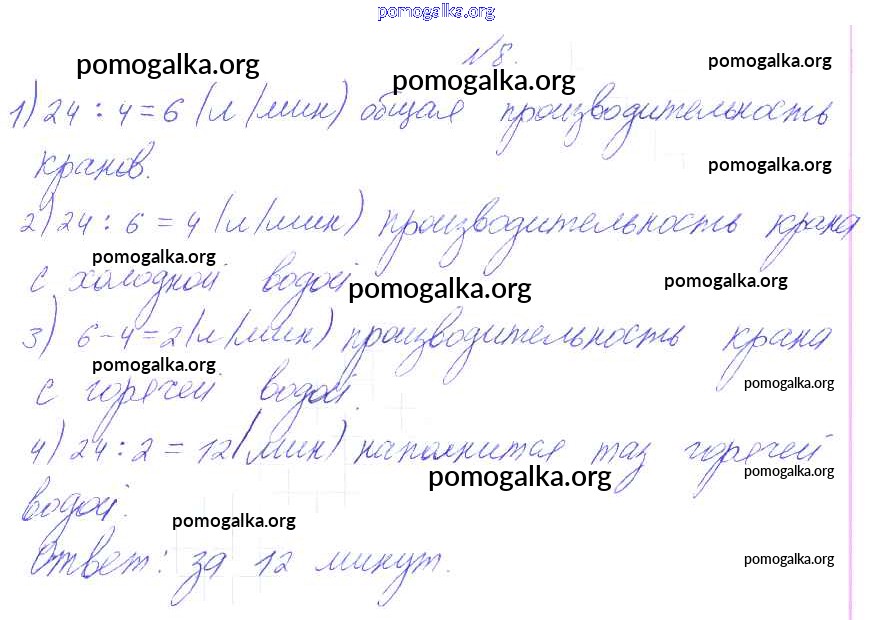 pomogalka.org
№8.
pomogalka.org pomogalka.org pomogalka.org
1) 24 : 4 = 6 (л/мин) общая производительность
кранов.
pomogalka.org
2) 24 : 6 = 4 (л/мин) производительность крана
pomogalka.org
с холодной водой
pomogalka.org pomogalka.org
3) 6 - 4 = 2 (л/мин) производительность крана
pomogalka.org
с горячей водой.
pomogalka.org
4) 24 : 2 = 12 (мин) наполнится таз горячей
pomogalka.org pomogalka.org
водой.
pomogalka.org
Ответ: за 12 минут.
pomogalka.org